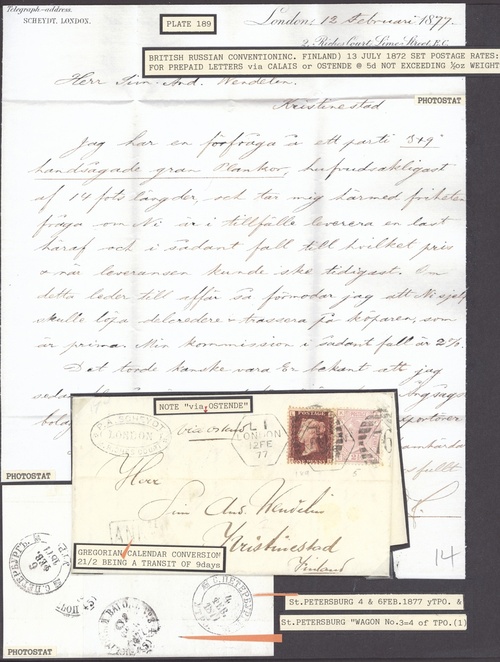 Telegraph-address.
SCHEYDT, LONDON.
PLATE 189
London, 12 Februari 1877.
2, Riches Court, Lime Street, E.C.
BRITISH RUSSIAN CONVENTIONINC. FINLAND) 13 JULY 1872 SET POSTAGE RATES:
FOR PREPAID LETTERS via CALAIS or OSTENDE @ 5d NOT EXCEEDING ½oz WEIGHT
Herr Sim. And. Wendelin.
Kristinestad
PHOTOSTAT
Jag har en förfråga å ett parti 3×9"
handsågade gran Plankor, hufvudsakligast
af 14 fots längder, och tar mig härmed friheten
fråga om Ni är i tillfälle leverera en last
häraf och i sådant fall till hvilket pris
& när leveransen kunde ske tidigast. Om
detta leder till affär så förmodar jag att Ni sjelf
skulle löpa delcredere & trassera på köparen, som
är prima. Min kommission i sådant fall är 2%.
Det torde kanske vara Er bekant att jag
NOTE "via OSTENDE"
SCHEYDT
LONDON
via Ostend
L 1
LONDON
12 FE
77
POSTAGE
PHOTOSTAT
Herr
Sim. And. Wendelin
Kristinestad
Finland
GREGORIAN CALENDAR CONVERSION
21/2 BEING A TRANSIT OF 9days
14
С.ПЕТЕРБУРГЪ
6
ФЕВ.
1877
С.ПЕТЕРБУРГ
4
ФЕВ.
1877
St.PETERSBURG 4 & 6FEB.1877 yTPO. &
St.PETERSBURG "WAGON No.3=4 of TPO.(1)
PHOTOSTAT